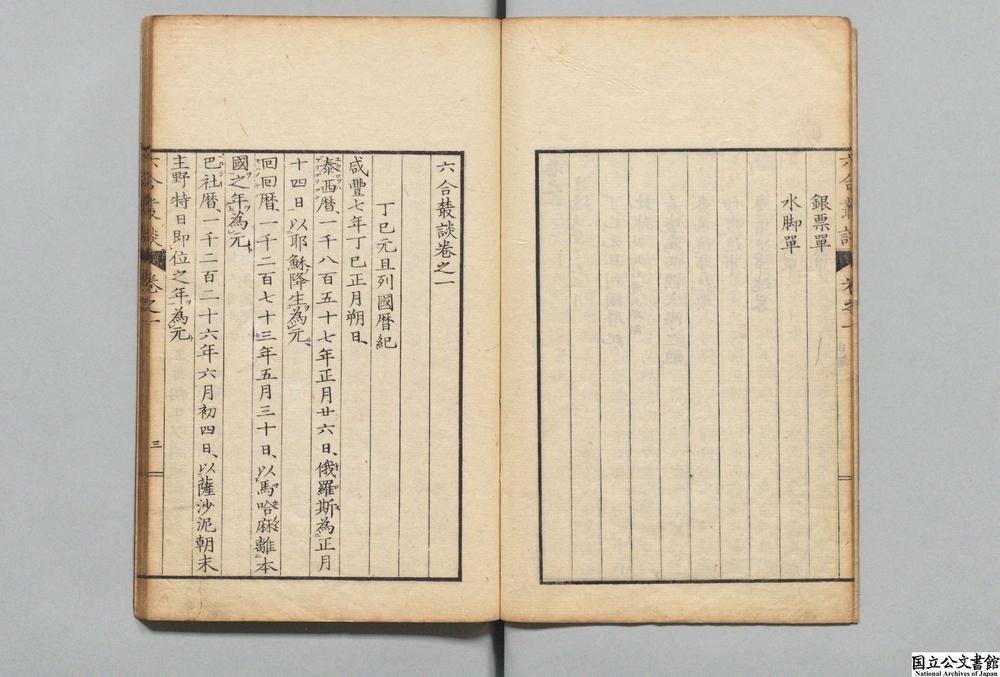 六合叢談 卷之一
銀票單
水脚單
六合叢談卷之一
丁巳元旦列國曆紀
咸豐七年丁巳正月朔日、
泰西曆、一千八百五十七年正月廿六日、俄羅斯為正月
十四日、以耶穌降生為元
回回曆、一千二百七十三年五月三十日、以馬哈麻離本
國之年為元、
巴社曆、一千二百二十六年六月初四日、以薩沙泥朝末
主野特日即位之年為元
六合叢談 卷之一 三
国立公文書館
National Archives of Japan